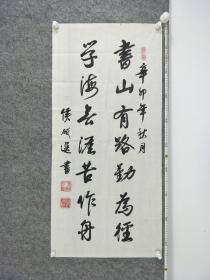 辛卯年秋月
書山有路勤為徑
学海无涯苦作舟
侯
書